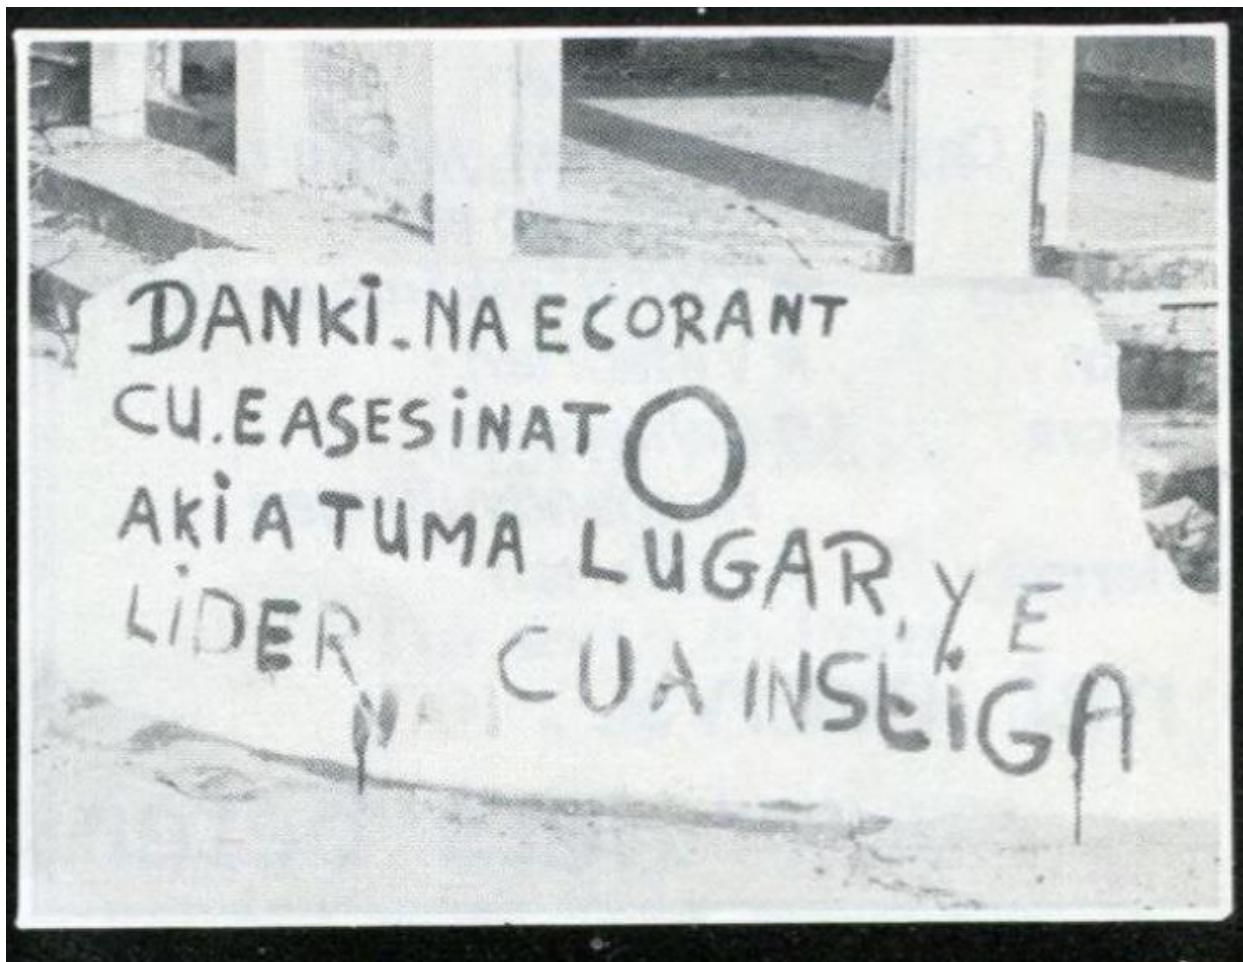 DANKI. NA E CORANT
CU. E ASESINATO
AKI A TUMA LUGAR, Y E
LIDER CU A INSTIGA